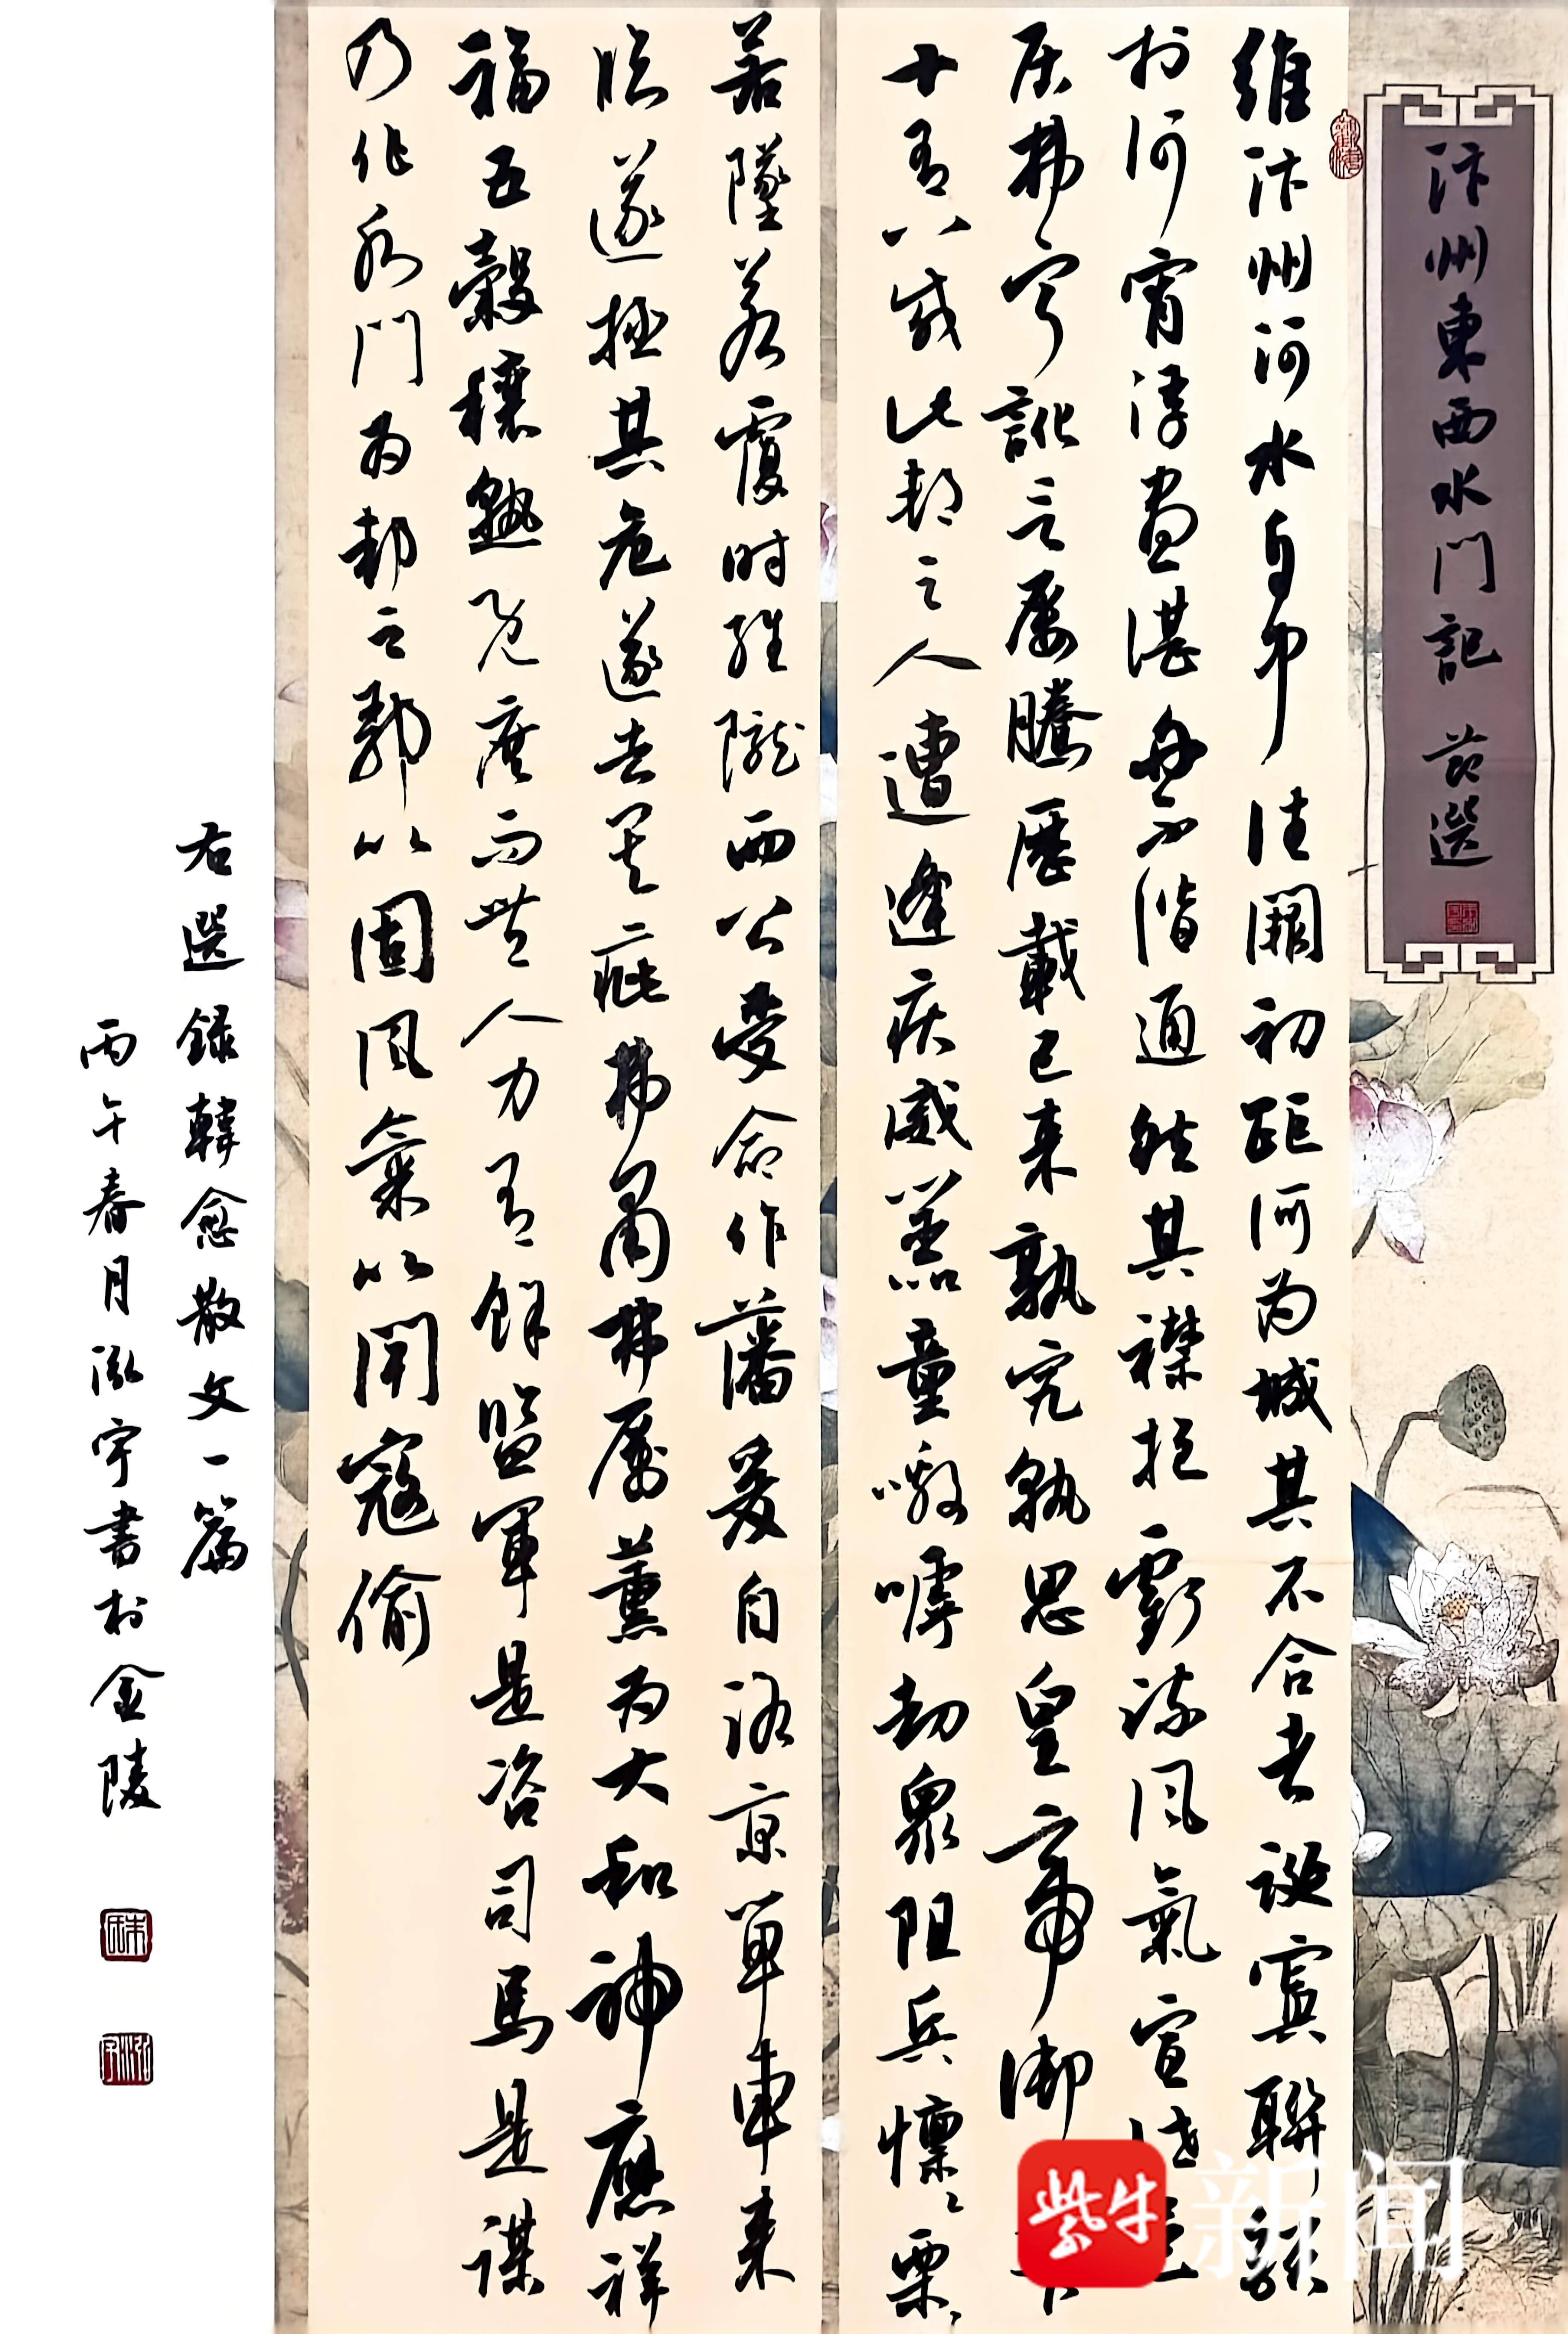 汴州東西水門記 節選
維汴州河水自中注闕初距河为城其不合者誕寘聯鎖
於河宵浮晝湛舟不階通然其襟抱虧疏風氣宣洩邑
居弗寧訛言屢騰歷載已来孰究孰思皇帝御下
十有八載此邦之人遭逢疾威嚚童噭嘑劫眾阻兵懍懍栗栗
若墜若覆时維隴西公受命作藩爰自洛京單車来
臨遂拯其危遂去其疵弗肅弗厲薰为大和神應祥
福五穀穰熟既庶而豐人力有餘監軍是咨司馬是謀
乃作水門为邦之郛以固風氣以閈寇偷
右選録韓愈散文一篇
丙午春月泓宇書於金陵
紫牛新闻